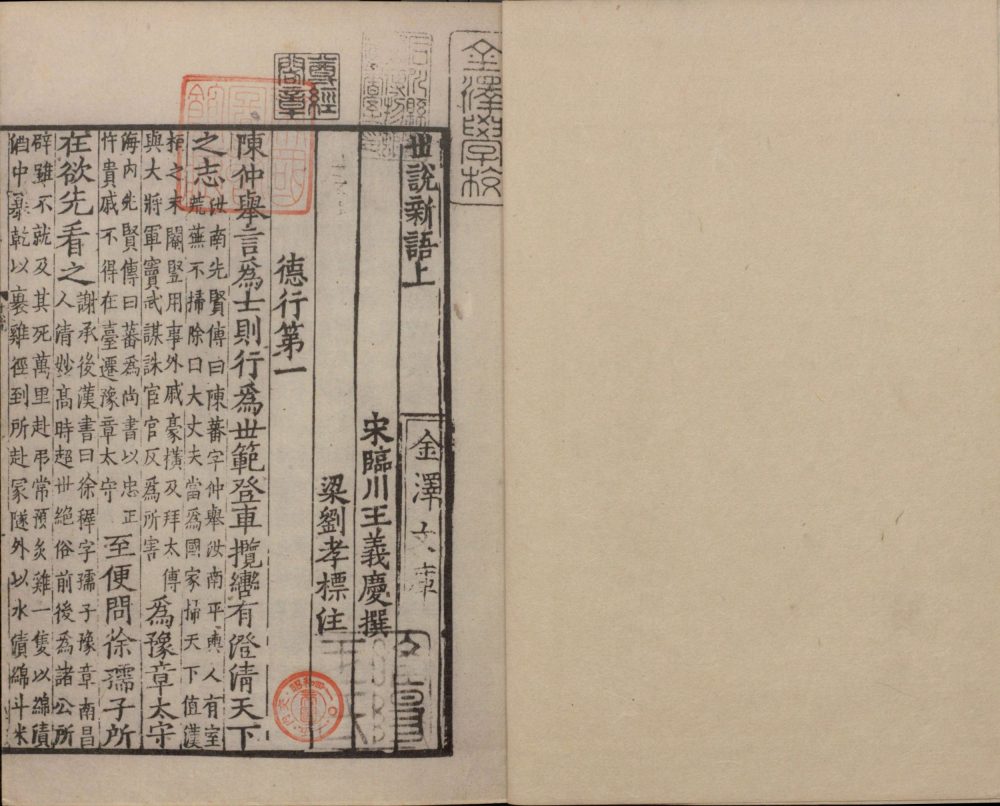 金澤學校
世說新語上
金澤文庫
宋臨川王義慶撰
梁劉孝標注
德行第一
尊經閣章
陳仲舉言爲士則行爲世範登車攬轡有澄清天下
之志汝南先賢傳曰陳蕃字仲舉汝南平輿人有室
荒蕪不掃除曰大丈夫當爲國家掃天下值漢
桓之末閹豎用事外戚豪橫及拜太傅
與大將軍竇武謀誅宦官反爲所害
爲豫章太守
海內先賢傳曰蕃爲尚書以忠正
忤貴戚不得在臺遷豫章太守
至便問徐孺子所
在欲先看之謝承後漢書曰徐穉字孺子豫章南昌
人清妙高時超世絕俗前後爲諸公所
辟雖不就及其死萬里赴弔常預炙雞一隻以綿漬
酒中暴乾以裹雞徑到所赴冢隧外以水漬綿斗米